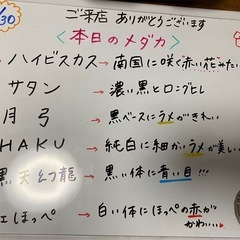 /30
ご来店 ありがとうございます
〈本日のメダカ〉
ハイビスカス → 南国に咲く赤い花みたい
サタン → 濃い黒とロングヒレ
月弓 → 黒ベースにラメがきれい
HAKU → 純白に細かいラメが美しい
黒天幻龍 → 黒い体に青い目!!!
ほっぺ → 白い体にほっぺの赤が
かわいい